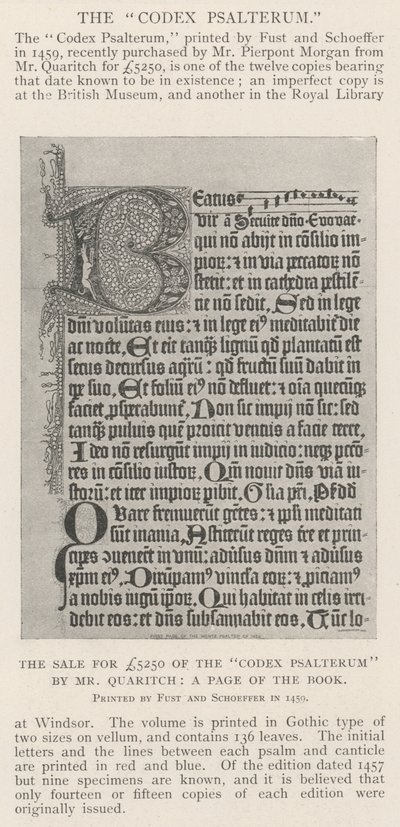 THE "CODEX PSALTERUM."
The "Codex Psalterum," printed by Fust and Schoeffer
in 1459, recently purchased by Mr. Pierpont Morgan from
Mr. Quaritch for £5250, is one of the twelve copies bearing
that date known to be in existence; an imperfect copy is
at the British Museum, and another in the Royal Library
Beatus
vir ā Secuite dño. Evovae.
qui nō abijt in cōsilio im-
pioꝝ: ⁊ in via peccatoꝝ nō
stetit: et in cathedra pestilē-
tie nō sedit. Sed in lege
dñi volūtas eius: ⁊ in lege eiꝰ meditabiť die
ac nocte. Et erit tanqꝫ lignū qd̄ plantatū est
secus decursus aqꝝ: qd̄ fructū suū dabit in
tꝑe suo. Et foliū eiꝰ nō defluet: ⁊ oīa quecūqꝫ
faciet ꝓsperabunť. Non sic impij nō sic: sed
tanqꝫ pulvis quē proicit ventus a facie terre.
Ideo nō resurgūt impij in iudicio: neqꝫ pctō-
res in cōsilio iustoꝝ. Qm̄ novit dñs viā iu-
stoꝝ: et iter impioꝝ ꝑibit. Glia pr̄i. Ps dd
Quare fremuerūt gētes: ⁊ ppli meditati
sūt inania. Astiterūt reges tr̄e et prin-
cipes ꝯvenerūt in vnū: adūsus dñm ⁊ adūsus
xpm eiꝰ. Dirūpamꝰ vincla eoꝝ: ⁊ ꝓiciamꝰ
a nobis iugū ipoꝝ. Qui habitat in celis irri-
debit eos: et dñs subsannabit eos. Tūc lo-
THE SALE FOR £5250 OF THE "CODEX PSALTERUM"
BY MR. QUARITCH: A PAGE OF THE BOOK.
PRINTED BY FUST AND SCHOEFFER IN 1459.
at Windsor. The volume is printed in Gothic type of
two sizes on vellum, and contains 136 leaves. The initial
letters and the lines between each psalm and canticle
are printed in red and blue. Of the edition dated 1457
but nine specimens are known, and it is believed that
only fourteen or fifteen copies of each edition were
originally issued.